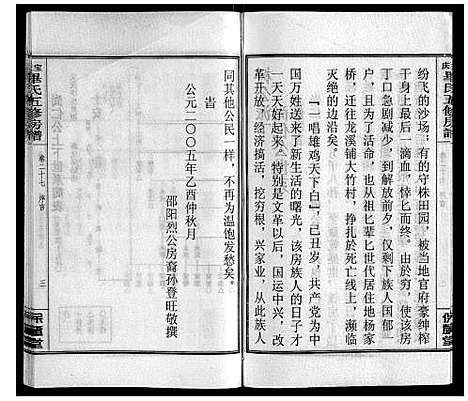 纷飞的沙场；有的守株田园，被当地官府豪绅榨
干身上最后一滴血，悻忾而终。由於穷，使该房
丁口急剧减少，到解放前夕，仅剩下族人国郁一
户，且为了活命，也从祖匕辈匕世代居住地杨家
桥，迁往龙溪铺大竹村，挣扎於死亡线上，濒临
灭绝的边沿矣。
『一唱雄鸡天下白』己丑岁，共产党为中
国万姓送来了新生活的曙光，该房族人的日子才
一天天好起来。特别是文革以后，国运中兴，改
革开放，经济搞活，挖穷根，兴家业，从此族人
同其他公民一样，不再为温饱发愁矣。
旹
公元二○○五年乙酉仲秋月
邵阳烈公房裔孙登旺敬撰
宝
畢氏五修房譜
卷二十七 序言
三
保釐堂
庆
畢氏五修房譜